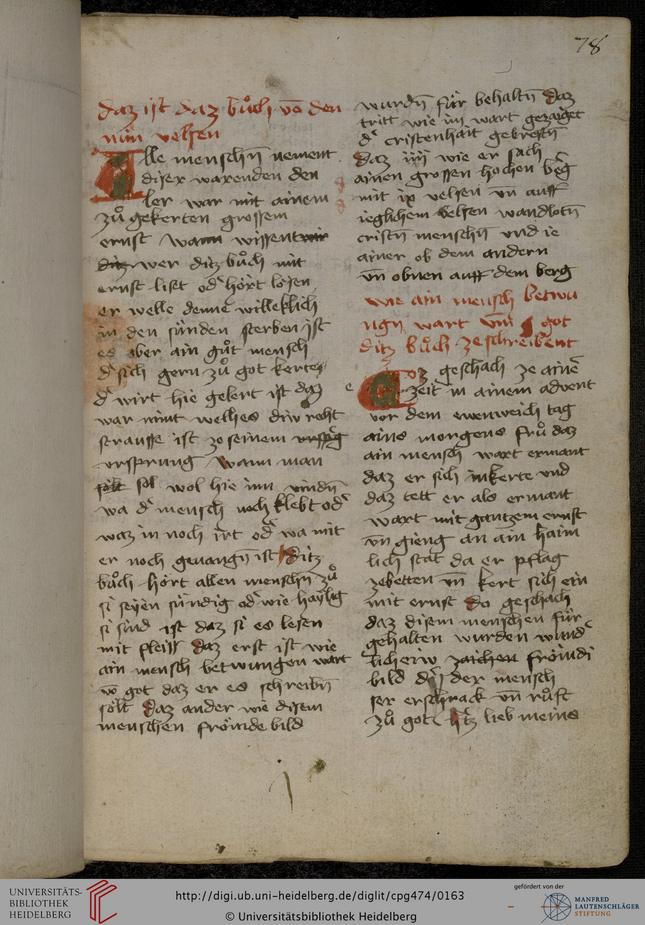 78
daz ist daz bůch vō den
nún velsen
Alle menschn̄ nement
diser warenden den
ler war mit ainem
zů gekerten grossem
ernst wann wissent wir
ditz wer ditz bůch mit
ernst list od' hórt lesen
er welle denne willeklich
in den súnden sterben ist
es aber ain gůt mensch
d' sich gern zů got kertes
d' wirt hie gelert ist daz
war nimt welhes diu reht
strausse ist ze seinem
ursprung Wann man
sólt sol wol hie inn vindn̄
wa d' mensch noch klebt od'
waz in noch irt od' wa mit
er noch gevangn̄ ist ditz
bůch hórt allen menschn̄ zů
si seyen súndig od' wie haylig
si sind ist daz si es lesen
mit fleiss daz erst ist wie
ain mensch betwungen wart
vō got daz er es schreibn̄
sólt daz ander wie disem
menschen frómde bild
wurdn̄ fúr behaltn̄ daz
tritt wie im wart gezaiget
d' cristenhait gebrestn̄
daz iiij wie er sach
ainen grossen hochen b'g
mit ix velsen vn̄ auff
ieglichem velsen wandlotn̄
cristn̄ menschn̄ und ie
ainer ob dem andern
vn̄ obnen auff dem berg
wie ain mensch betwu
ngn̄ wart vōn got
ditz bůch ze schreibent
Ez geschach ze ainē
zeit in ainem advent
vor dem ewenweich tag
ains morgens frů daz
ain mensch wart ermant
daz er sich inkerte und
daz tett er als ermant
wart mit gantzem ernst
vn̄ gieng an ain haim
lich stat da er pflag
zebetten vn̄ kert sich ein
mit ernst do geschach
daz disem menschen fúr
gehalten wurden wund'
licheiw zaichen frómdi
bild daz der mensch
ser erschrack vn̄ růft
zů got h'tz lieb meins
UNIVERSITÄTS-
BIBLIOTHEK
HEIDELBERG
http://digi.ub.uni-heidelberg.de/diglit/cpg474/0163
© Universitätsbibliothek Heidelberg
gefördert von der
MANFRED
LAUTENSCHLÄGER
STIFTUNG